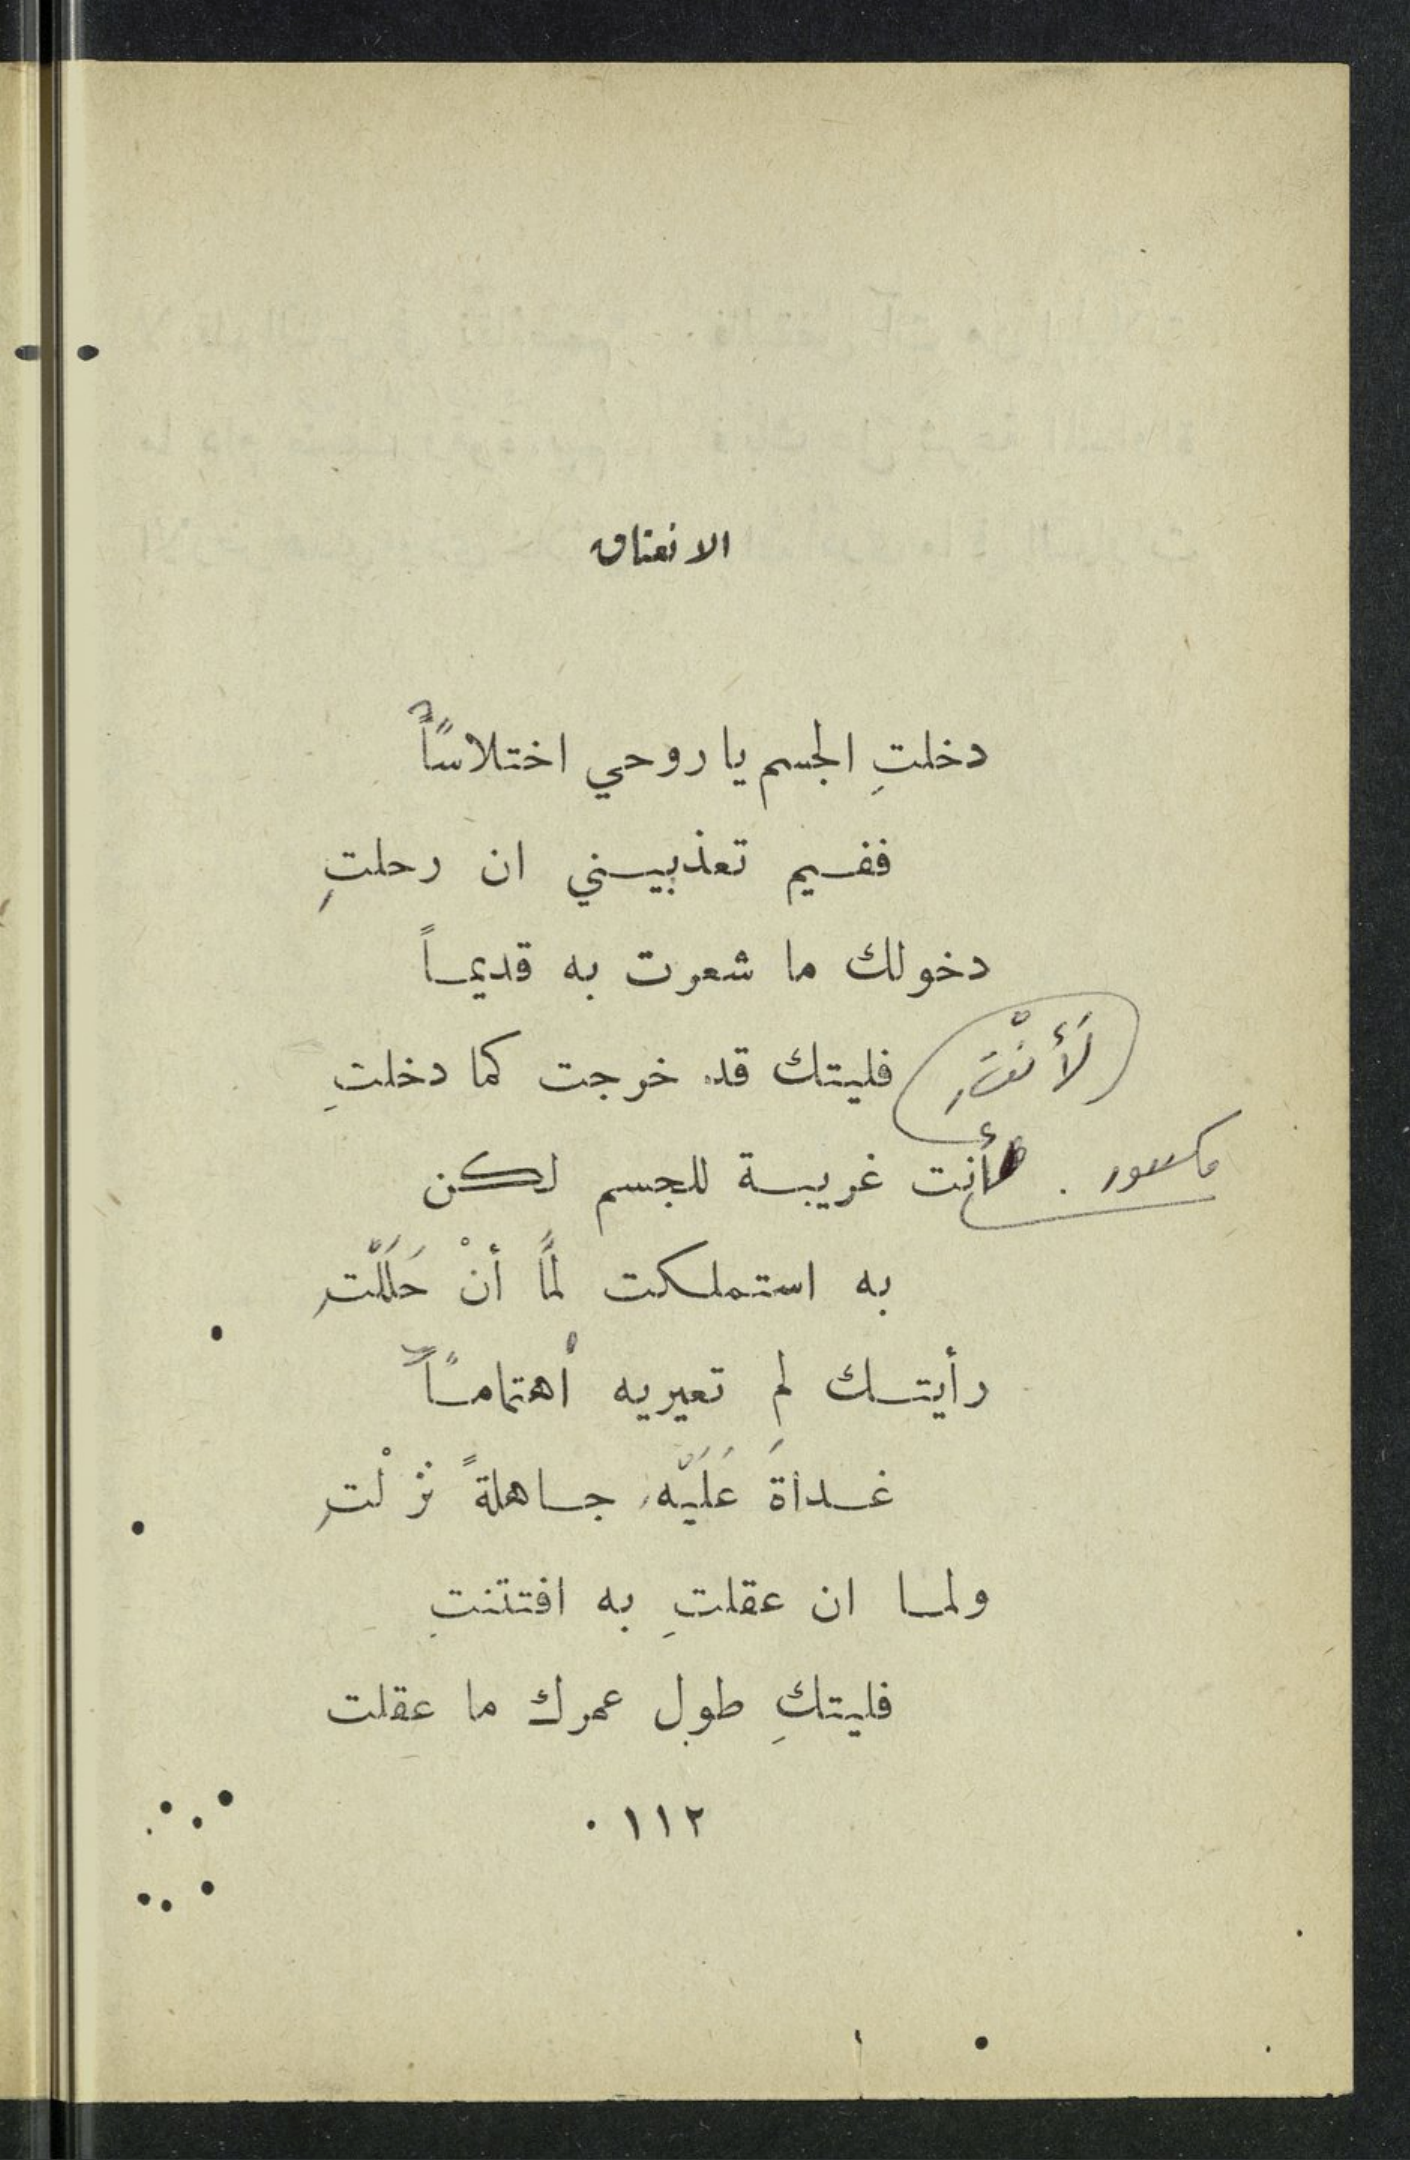 الانعتاق
دخلتِ الجسم يا روحي اختلاساً
ففيم تعذبيني ان رحلتِ
دخولك ما شعرت به قديماً
لَأَنْتِ فليتك قد خرجت كما دخلتِ
مكسور . أنت غريبة للجسم لكن
به استملكت لمَّا أنْ حَلَلْتِ
رأيتك لم تعيريه اهتماماً
غداةَ عَلَيْه جاهلةً نزلْتِ
ولما ان عقلتِ به افتتنتِ
فليتكِ طول عمرك ما عقلت
١١٢